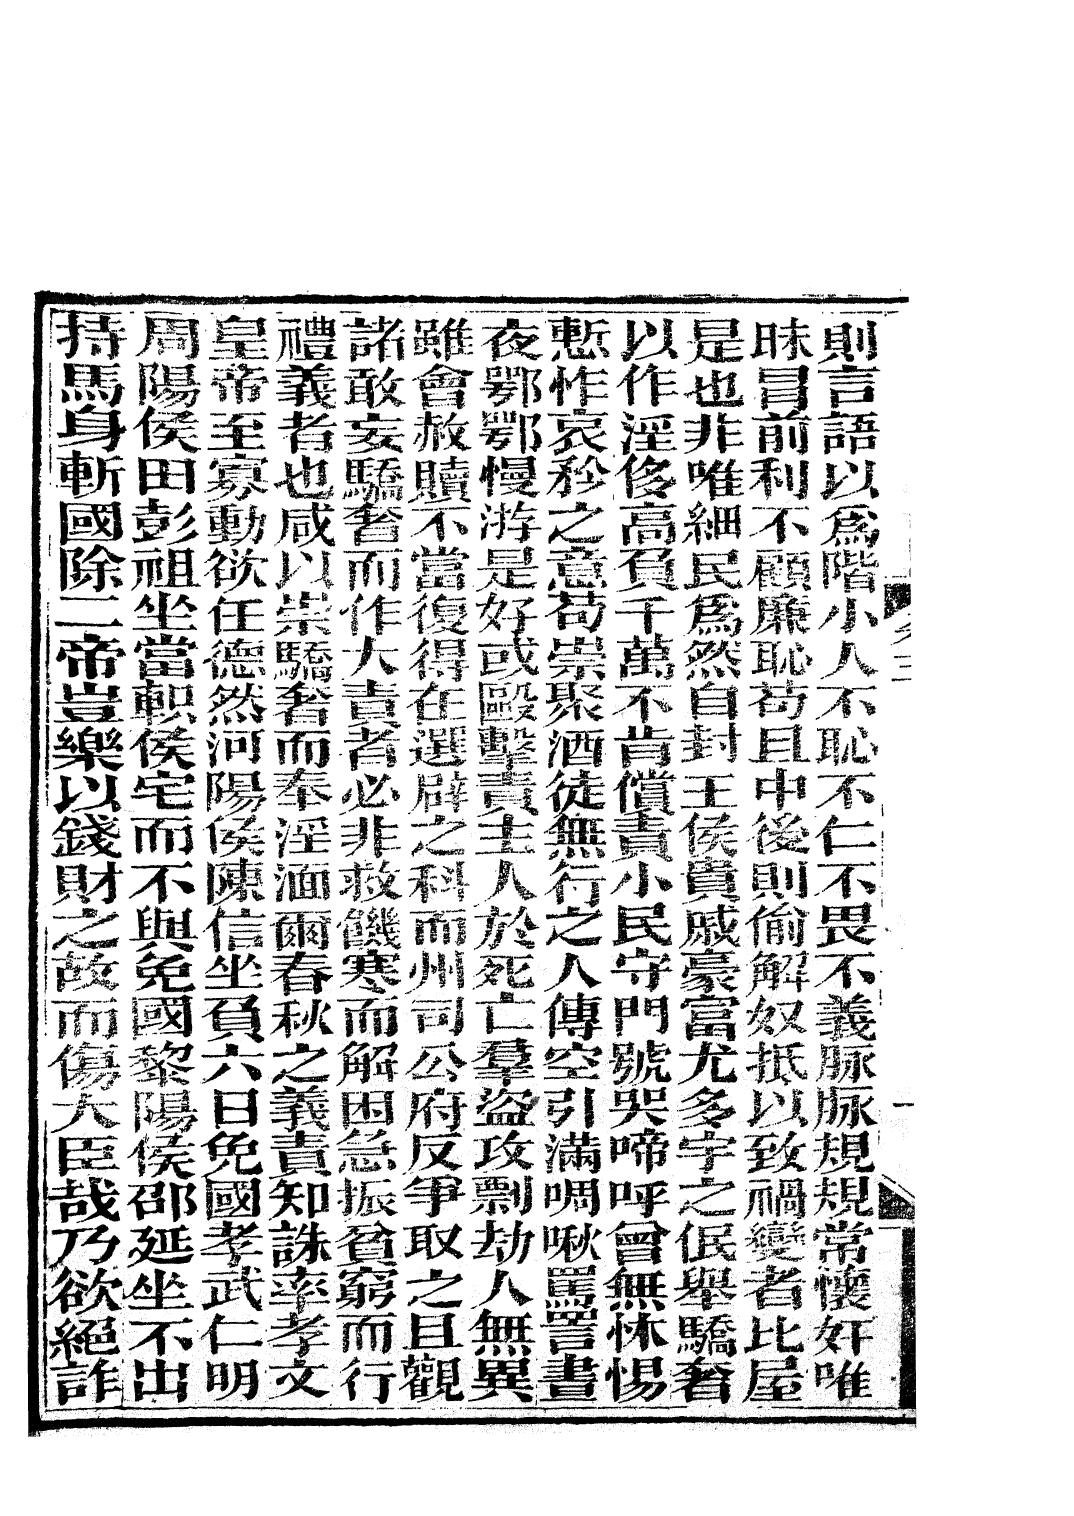 則言語以爲階小人不恥不仁不畏不義脉脉規規常懷奸唯
昧冒前利不顧廉恥苟且中後則偷解奴抵以致禍變者比屋
是也非唯細民爲然自封王侯貴戚豪富尤多之舉驕奢
以作淫侈高負千萬不肯償責小民守門號哭啼呼曾無怵惕
慙怍哀矜之意苟崇聚酒徒無行之人傳空引滿啁啾罵詈晝
夜鄂鄂慢游是好或毆擊責主人於死亡羣盜攻剽劫人無異
雖會赦贖不當復得在選辟之科而州司公府反爭取之且觀
諸敢妄驕奢而作大責者必非救饑寒而解困急振貧窮而行
禮義者也咸以崇驕奢而奉淫湎爾春秋之義責知誅率孝文
皇帝至寡動欲任德然河陽侯陳信坐負六日免國孝武仁明
周陽侯田彭祖坐當軹侯宅而不與免國黎陽侯邵延坐不出
持馬身斬國除二帝豈樂以錢財之故而傷大臣哉乃欲絕詐